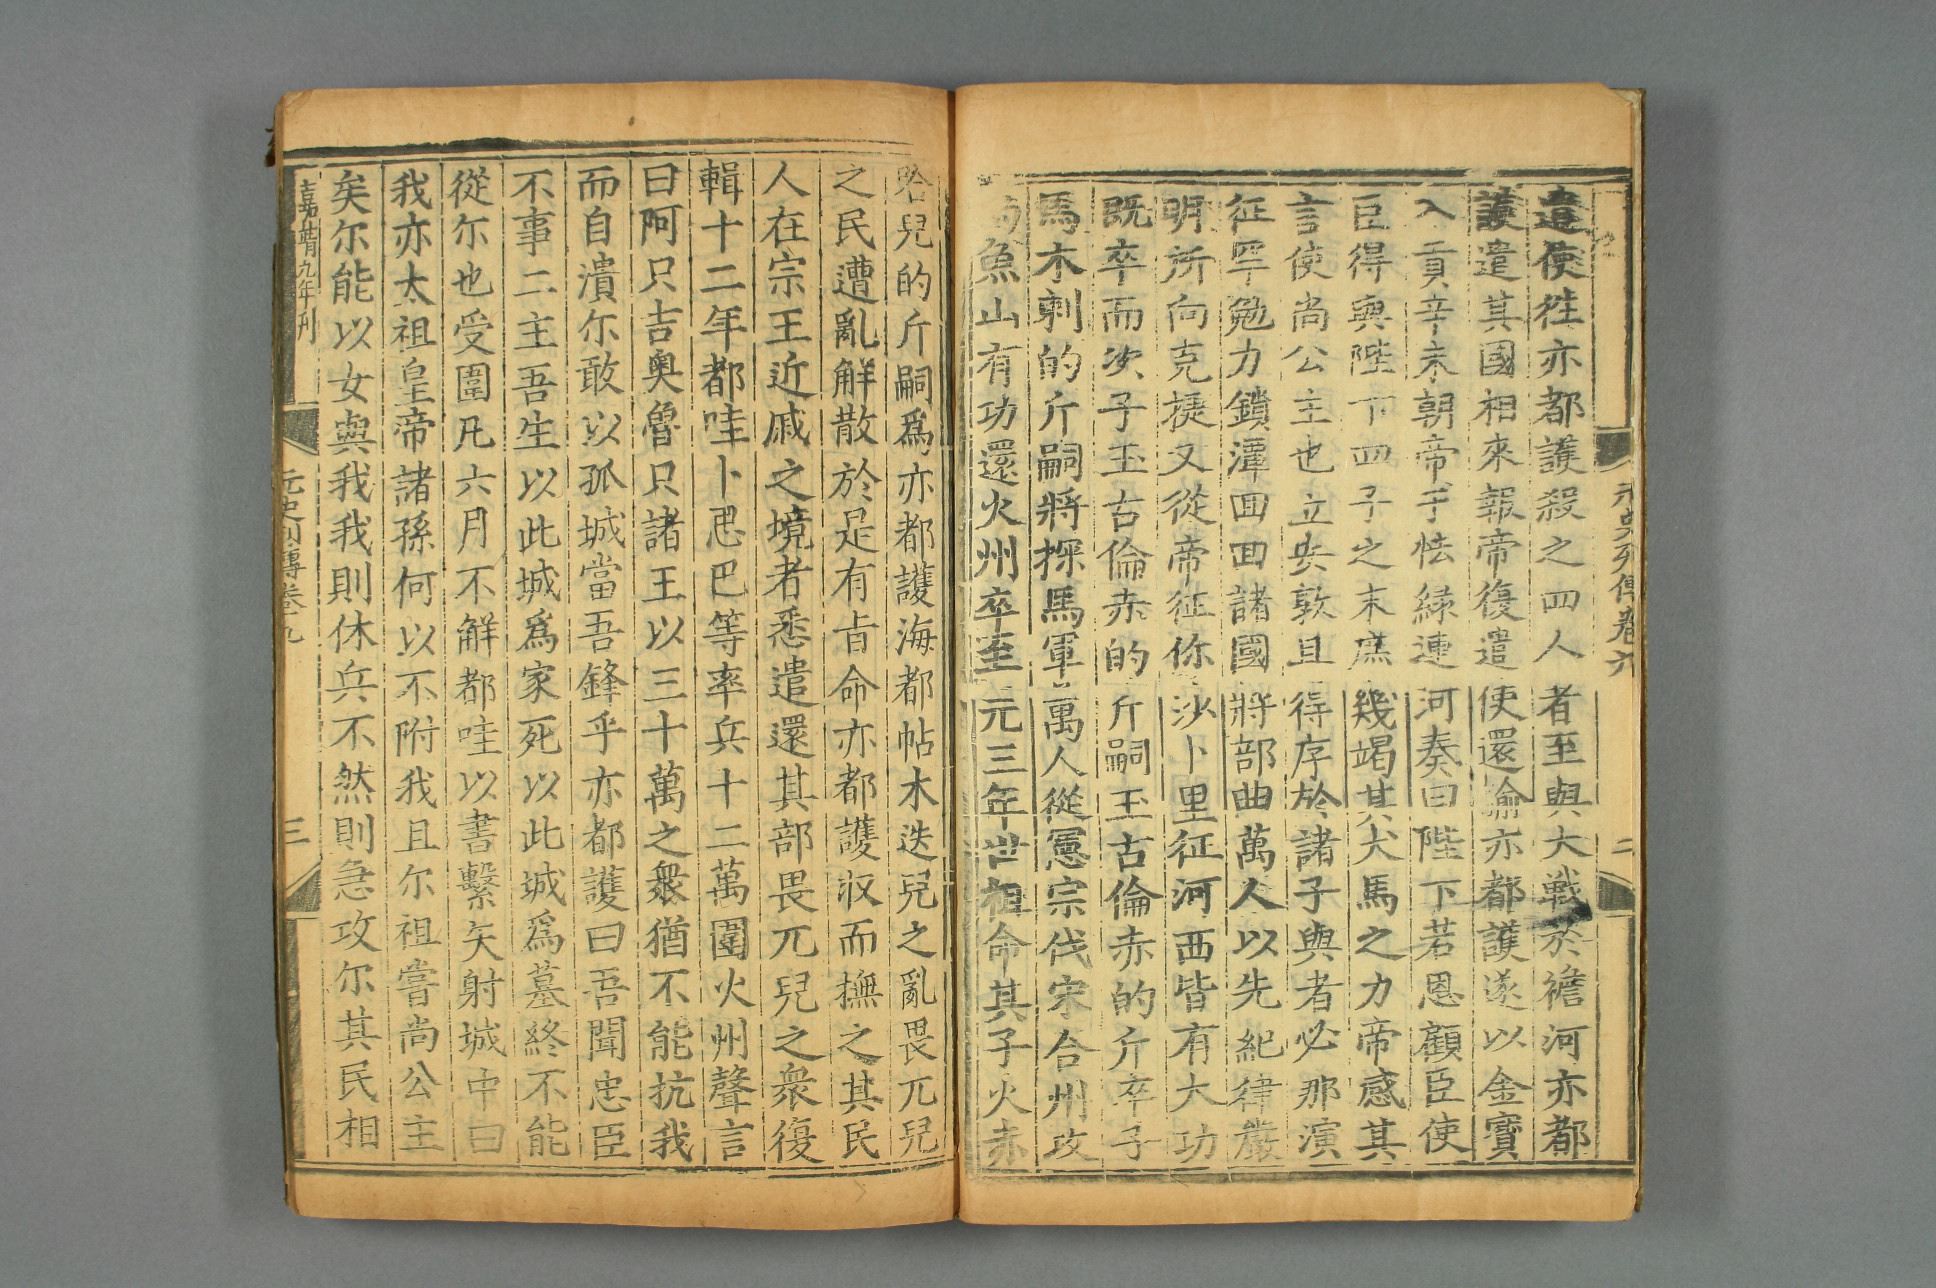 元史列傳卷六
二
遣使徃亦都護殺之四人者至與大戰於襜河亦都
護遣其國相來報帝復遣使還諭亦都護遂以金寶
入貢辛未朝帝于怯綠連河奏曰陛下若恩顧臣使
臣得與陛下四子之末庶幾竭其犬馬之力帝感其
言使尚公主也立安敦且得序於諸子與者必那演
征罕勉力鎖潭回回諸國將部曲萬人以先紀律嚴
明所向克捷又從帝征你沙卜里征河西皆有大功
既卒而次子玉古倫赤的斤嗣玉古倫赤的斤卒子
馬木剌的斤嗣將探馬軍萬人從憲宗伐宋合州攻
魚山有功還火州卒至元三年世祖命其子火赤
哈兒的斤嗣爲亦都護海都帖木迭兒之亂畏兀兒
之民遭亂解散於是有旨命亦都護收而撫之其民
人在宗王近戚之境者悉遣還其部畏兀兒之衆復
輯十二年都哇卜思巴等率兵十二萬圍火州聲言
曰阿只吉奥魯只諸王以三十萬之衆猶不能抗我
而自潰尔敢以孤城當吾鋒乎亦都護曰吾聞忠臣
不事二主吾生以此城爲家死以此城爲墓終不能
從尔也受圍凡六月不解都哇以書繫矢射城中曰
我亦太祖皇帝諸孫何以不附我且尔祖嘗尚公主
矣尔能以女與我我則休兵不然則急攻尔其民相
嘉靖九年刊
元史列傳卷九
三